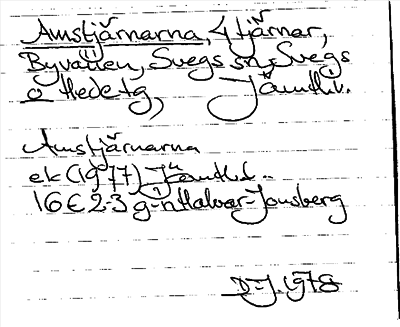 Amstjärnarna, 4 tjärnar,
Byvallen, Svegs sn, Svegs
o Hede tg, Jämtl.
Amstjärnarna
ek (1977) Jämtl.
16E2-3 g-h Halvar-Jonsberg
D-J. 1978